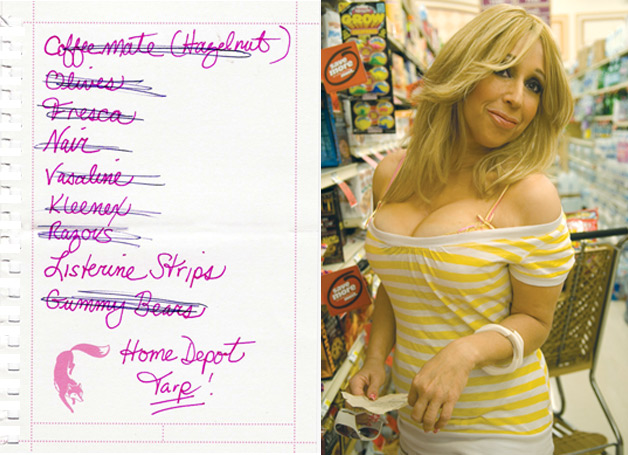 Coffeemate (Hazelnut)
Olives
Fresca
Nair
Vasaline
Kleenex
Razors
Listerine Strips
Gummy Bears
Home Depot
Tarp!
GROW
save
more
save
more